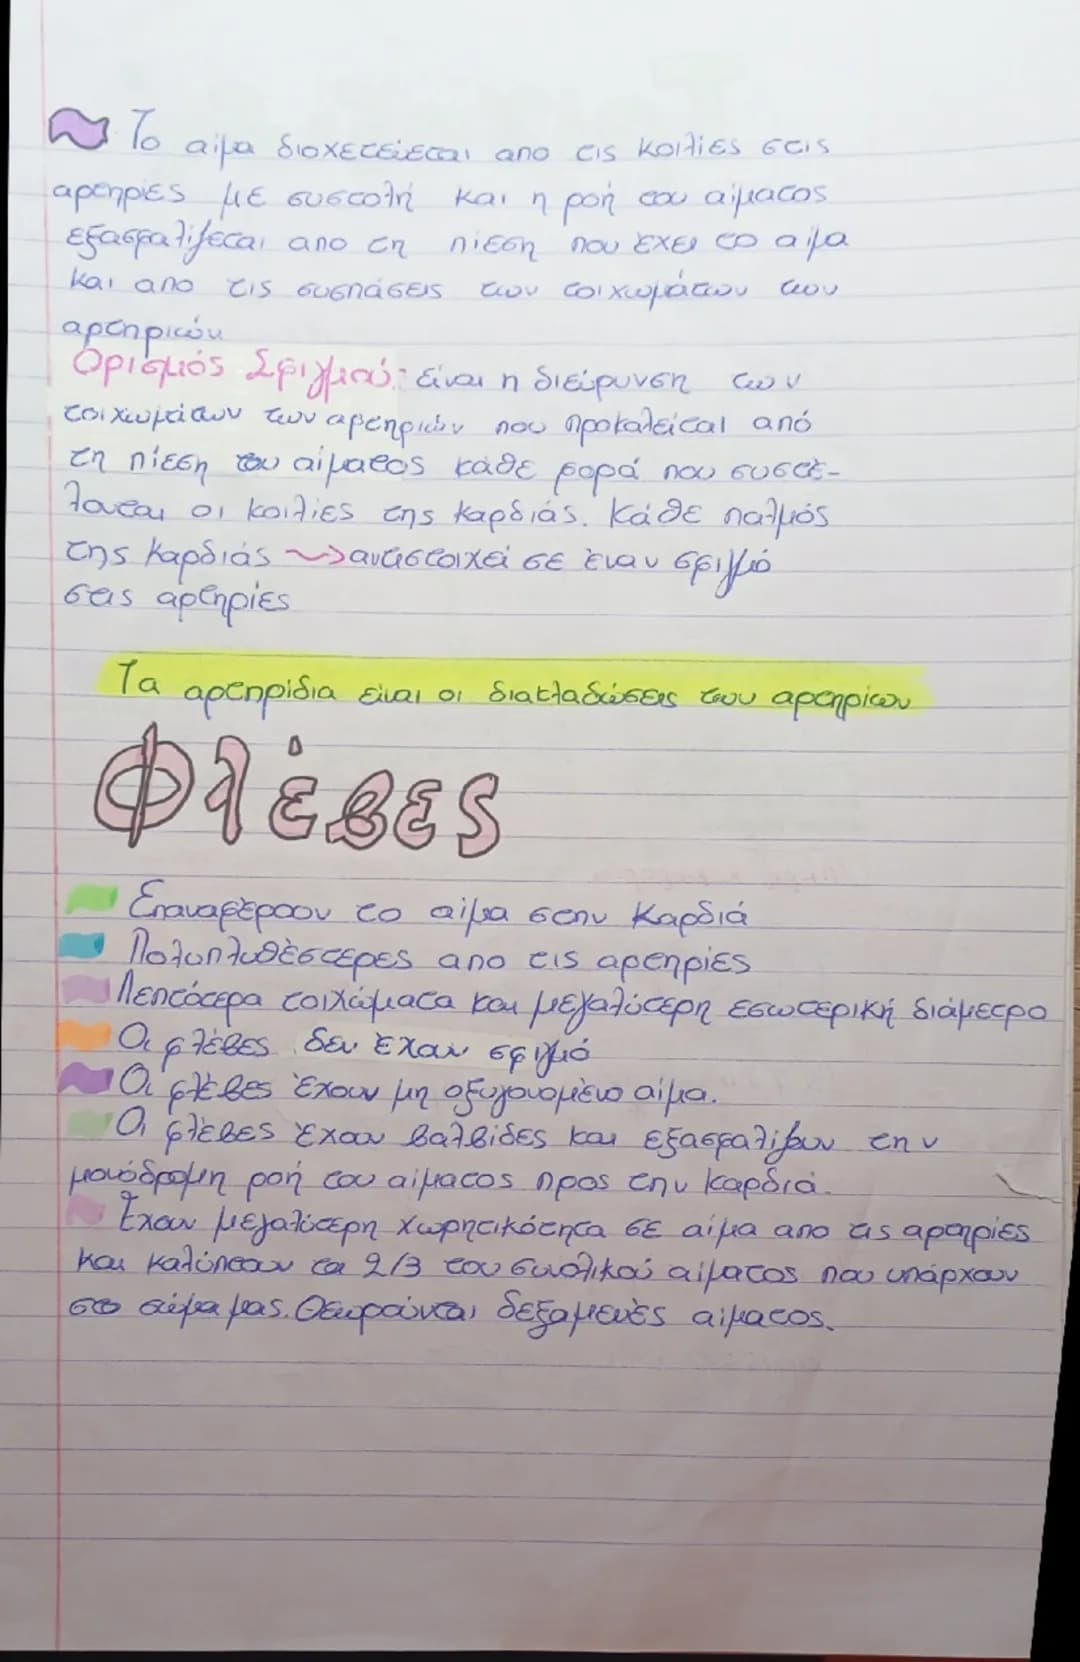 Το αίμα διοχετεύεται απο τις κοιλίες στις
αρτηρίες με συστολή και η ροή του αίματος
εξασφαλίζεται απο τη πίεση που έχει το αίμα
και απο τις συσπάσεις των τοιχωμάτων των
αρτηριών
Ορισμός Σφιγμού: είναι η διεύρυνση των
τοιχωμάτων των αρτηριών που προκαλείται από
τη πίεση του αίματος κάθε φορά που συστέ-
λονται οι κοιλίες της καρδιάς. Κάθε παλμός
της καρδιάς → αντιστοιχεί σε έναν σφιγμό
στις αρτηρίες
Τα αρτηρίδια είναι οι διακλαδώσεις των αρτηριών
Φλέβες
Επαναφέρουν το αίμα στην Καρδιά
Πολυπλυθέστερες απο τις αρτηρίες
Λεπτότερα τοιχώματα και μεγαλύτερη εσωτερική διάμετρο
Οι φλέβες δεν έχουν σφιγμό
Οι φλέβες έχουν μη οξυγονομένο αίμα.
Οι φλέβες έχουν βαλβίδες και εξασφαλίζουν την
μονόδρομη ροή του αίματος προς την καρδιά.
Έχουν μεγαλύτερη χωρητικότητα σε αίμα απο τις αρτηρίες
και καλύπτουν τα 2/3 του συνολικού αίματος που υπάρχουν
στο σώμα μας. Θεωρούνται δεξαμενές αίματος.